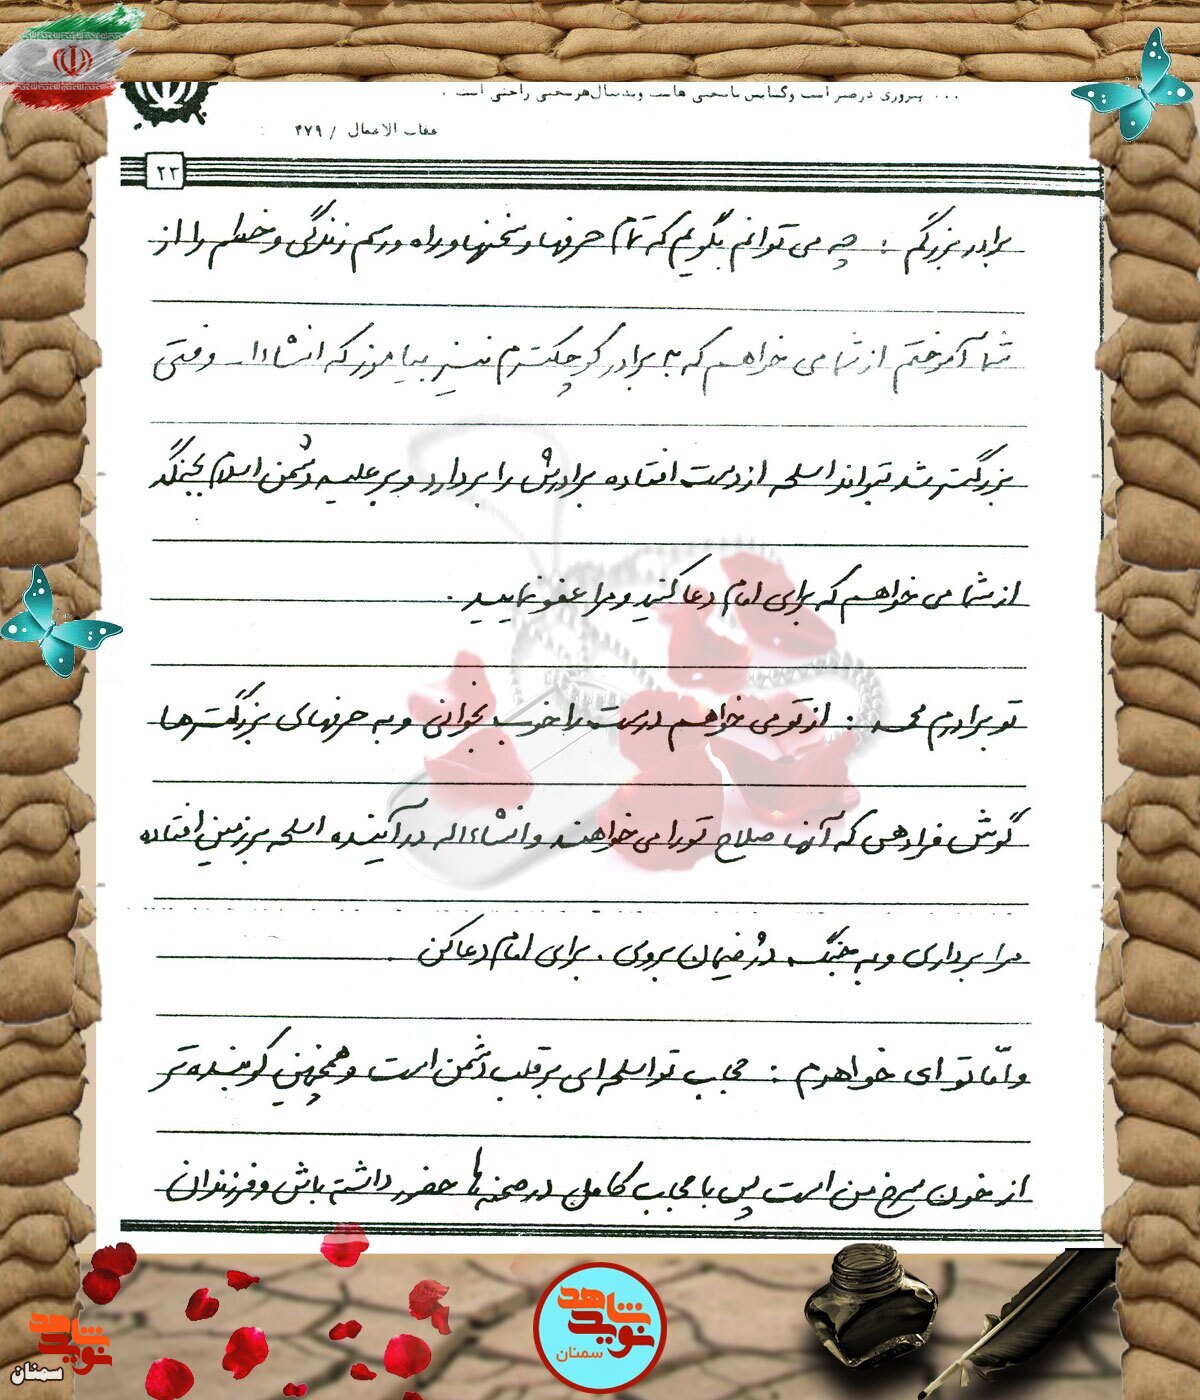 ... پیروزی در صبر است و گشایش با سختی هاست و بدنبال هر سختی راحتی است .
عقاب الاعمال / ۴۷۹ :
۲۳
برادر بزرگم : چه می توانم بگویم که تمام حرفها و سخنها و راه و رسم زندگی و خطم را از
شما آموختم از شما می خواهم که به برادر کوچکترم نیز بیاموز که انشاءا... وقتی
بزرگتر شد بتواند اسلحه از دست افتاده برادرش را بردارد و بر علیه دشمن اسلام بجنگد
از شما می خواهم که برای امام دعا کنید و مرا عفو نمایید .
تو برادرم محمد : از تو می خواهم درست را خوب بخوانی و به حرفهای بزرگترها
گوش فرا دهی که آنها صلاح تو را می خواهند و انشاءاله در آینده اسلحه بر زمین افتاده
مرا برداری و به جنگ دژخیمان بروی . برای امام دعا کن .
و امّا تو ای خواهرم : حجاب تو اسلحه ای بر قلب دشمن است و همچنین کوبنده تر
از خون سرخ من است پس با حجاب کامل در صحنه ها حضور داشته باش و فرزندان
نوید شاهد
سمنان
نوید شاهد
سمنان